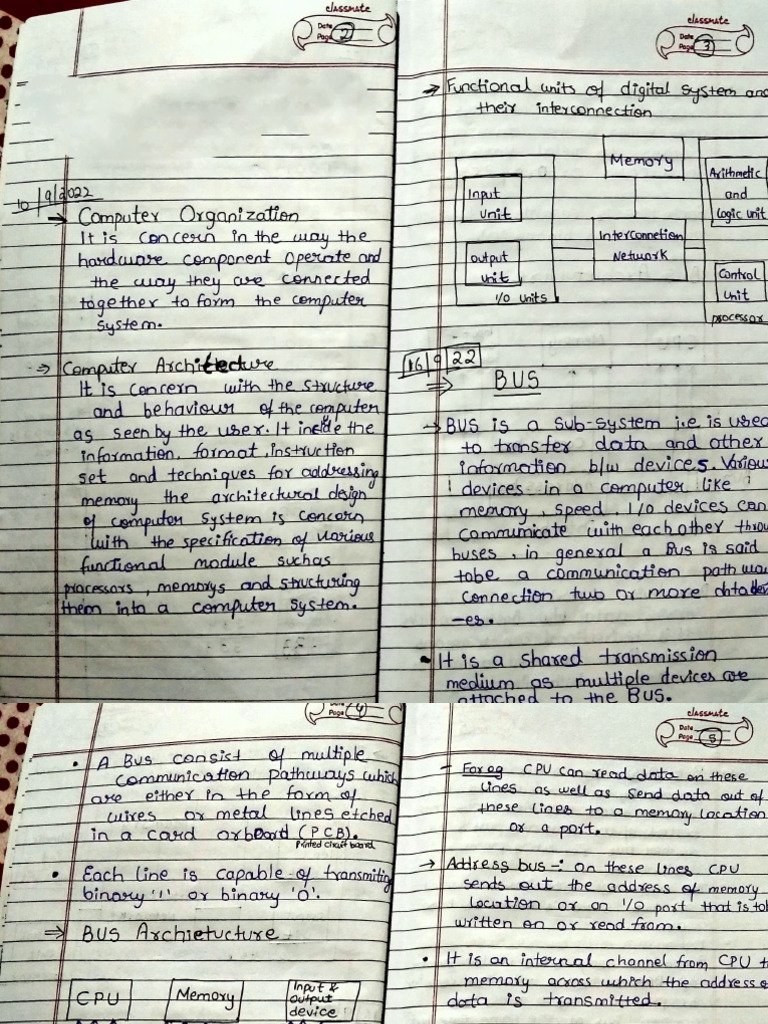 classmate
Date
Page 2
10/9/2022
→ Computer Organization
It is concern in the way the
hardware component operate and
the way they are connected
together to form the computer
system.
⇒ Computer Architecture
It is concern with the structure
and behaviour of the computer
as seen by the user. It inside the
information, format, instruction
set and techniques for addressing
memory the architectural design
of computer system is concern
with the specification of various
functional module suchas
processors, memorys and structuring
them into a computer system.
classmate
Date
Page 3
→ Functional units of digital system and
their interconnection
Memory
Input
unit
Output
unit
I/O units
Interconnetion
Network
Arithmetic
and
Logic unit
Control
unit
processor
16/9/22
⇒ BUS
→ BUS is a sub-system i.e is used
to transfer data and other
information b/w devices. Various
devices in a computer like
memory, speed, I/O devices can
communicate with each other throu
buses, in general a Bus is said
tobe a communication path way
connection two or more data dev
-es.
• It is a shared transmission
medium as multiple devices are
attached to the BUS.
Page 4
• A Bus consist of multiple
communication pathways which
are either in the form of
wires or metal lines etched
in a card or board (PCB).
• Each line is capable of transmiting
binary '1' or binary '0'.
⇒ BUS Archietucture
CPU
Memory
Input &
output
device
classmate
Date
Page 5
- For eg CPU can read data on these
lines as well as send data out of
these lines to a memory location
or a port.
→ Address bus -: on these lines CPU
sends out the address of memory
location or on I/O port that is tob
written on or read from.
• It is an internal channel from CPU t
memory across which the address o
data is transmitted.